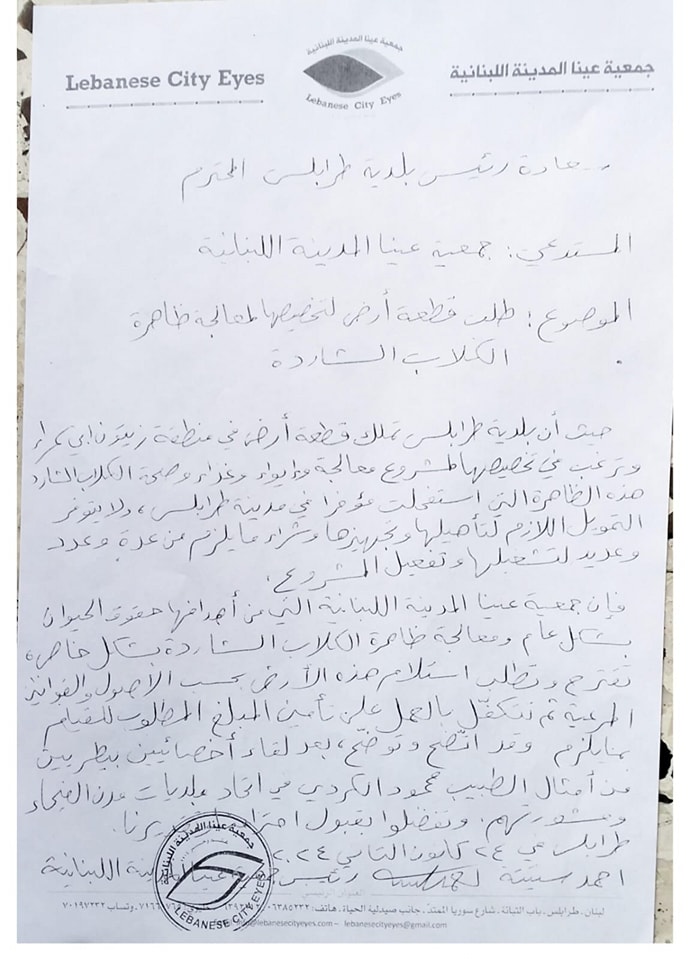 جمعية عينا المدينة اللبنانية
Lebanese City Eyes
Lebanese City Eyes
جمعية عينا المدينة اللبنانية
سعادة رئيس بلدية طرابلس المحترم
المستدعي: جمعية عينا المدينة اللبنانية
الموضوع: طلب قطعة أرض لتخصيصها لمعالجة ظاهرة
الكلاب الشاردة
حيث أن بلدية طرابلس تملك قطعة أرض في منطقة زيتون ابي سمراء
وترغب في تخصيصها لمشروع معالجة وإيواء وغذاء وصحة الكلاب الشاردة
هذه الظاهرة التي استفحلت مؤخرا في مدينة طرابلس، ولا يتوفر
التمويل اللازم لتأهيلها وتجهيزها وشراء ما يلزم من عدة وعدد
وعديد لتشغيلها وتفعيل المشروع.
فإن جمعية عينا المدينة اللبنانية التي من أهدافها حقوق الحيوان
بشكل عام ومعالجة ظاهرة الكلاب الشاردة بشكل خاص،
تقترح وتطلب استلام هذه الأرض بحسب الاصول والقوانين
المرعية ثم تتكفّل بالعمل على تأمين المبلغ المطلوب للقيام
بما يلزم وقد اتّضح وتوضّح، بعد لقاء أخصائيين بيطريين
من أمثال الطبيب محمود الكردي في اتحاد بلديات مدن الفيحاء
ومشورتهم. وتفضلوا بقبول
طرابلس في ٢٤ كانون الثاني ٢٠٢٤
احمد ستيتة رئيس جمعية عينا المدينة اللبنانية
جمعية عينا المدينة اللبنانية
LEBANESE CITY EYES
لبنان ـ طرابلس ـ باب التبانة ـ شارع سوريا الممتدّ ـ جانب صيدلية الحياة ـ هاتف: ـ وتساب ٧٠١٩٧٢٣٢
@lebanesecityeyes.com – lebanesecityeyes@gmail.com